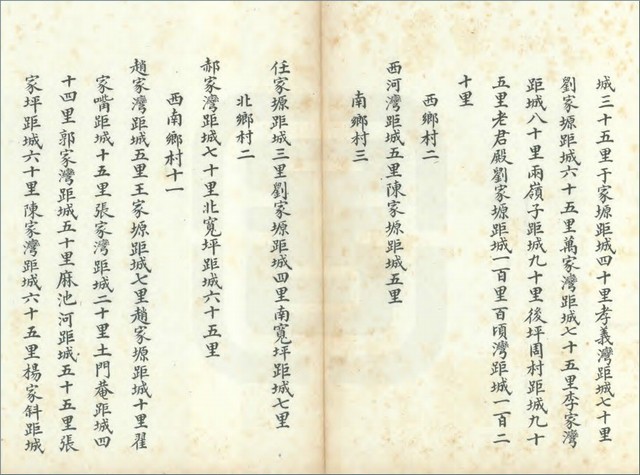 城三十五里于家塬距城四十里孝義灣距城七十里
劉家塬距城六十五里萬家灣距城七十五里李家灣
距城八十里兩嶺子距城九十里後坪周村距城九十
五里老君殿劉家塬距城一百里百頃灣距城一百二
十里
西鄉村二
西河灣距城五里陳家塬距城五里
南鄉村三
任家塬距城三里劉家塬距城四里南寬坪距城七里
北鄉村二
郝家灣距城七十里北寬坪距城六十五里
西南鄉村十一
趙家灣距城五里王家塬距城七里趙家塬距城十里翟
家嘴距城十五里張家灣距城二十里土門菴距城四
十四里郭家灣距城五十里麻池河距城五十五里張
家坪距城六十里陳家灣距城六十五里楊家斜距城